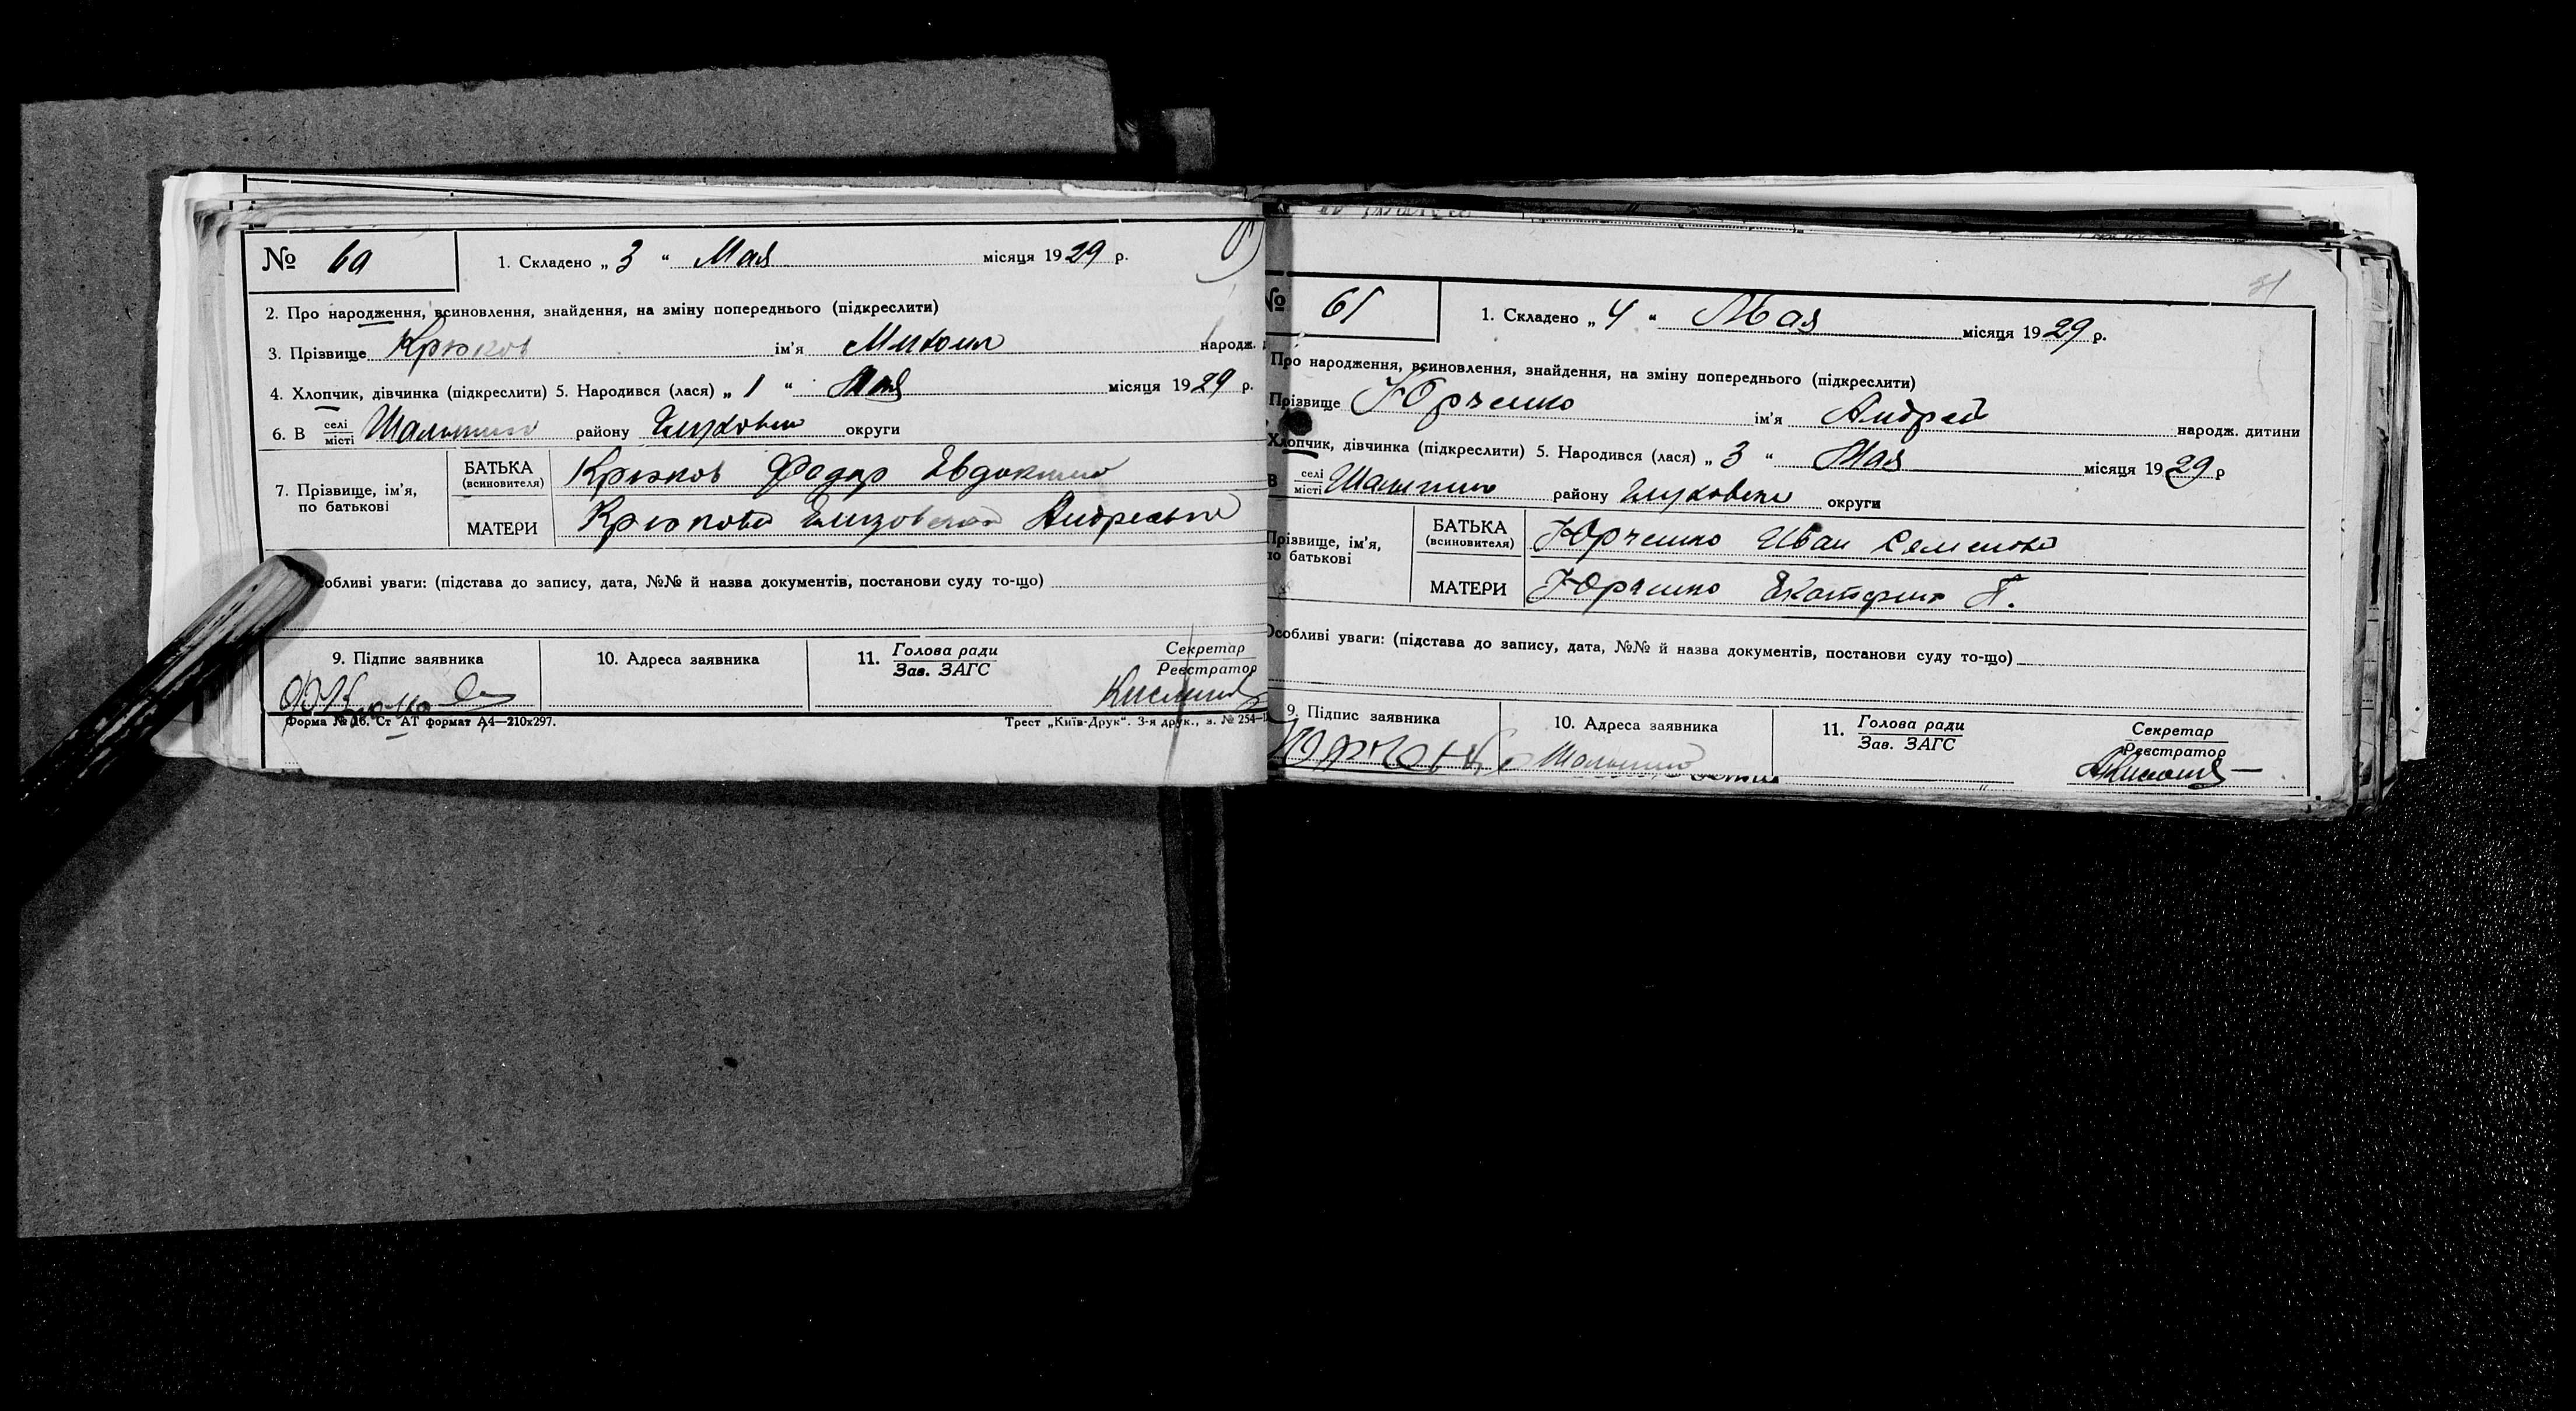 № 60
1. Складено „ 3 “ Мая місяця 1929 р.
2. Про народження, всиновлення, знайдення, на зміну попереднього (підкреслити)
3. Прізвище Крюков ім'я Михаил народж.
4. Хлопчик, дівчинка (підкреслити) 5. Народився (лася) „ 1 “ Мая місяця 1929 р.
6. В селі місті Шалыгино району Глуховск округи
7. Прізвище, ім'я, по батькові
БАТЬКА (всиновителя) Крюков Федор Евдоким
МАТЕРИ Крюкова Елизовета Андреевна
собливі уваги: (підстава до запису, дата, №№ й назва документів, постанови суду то-що)
9. Підпис заявника
10. Адреса заявника
11. Голова ради Зав. ЗАГС
Секретар Реєстратор
Форма № 16. Ст АТ формат А4—210х297.
Трест „Київ-Друк“. 3-я друк., з. № 254—
31
№ 61
1. Складено „ 4 “ Мая місяця 1929 р.
Про народження, всиновлення, знайдення, на зміну попереднього (підкреслити)
Прізвище Юрченко ім'я Андрей народж. дитини
Хлопчик, дівчинка (підкреслити) 5. Народився (лася) „ 3 “ Мая місяця 1929 р
В селі місті Шалыгино району Глуховск округи
Прізвище, ім'я, по батькові
БАТЬКА (всиновителя) Юрченко Иван Семенов
МАТЕРИ Юрченко Екатерина П.
Особливі уваги: (підстава до запису, дата, №№ й назва документів, постанови суду то-що)
9. Підпис заявника
Юрченко
10. Адреса заявника
Шалыгино
11. Голова ради Зав. ЗАГС
Секретар Реєстратор